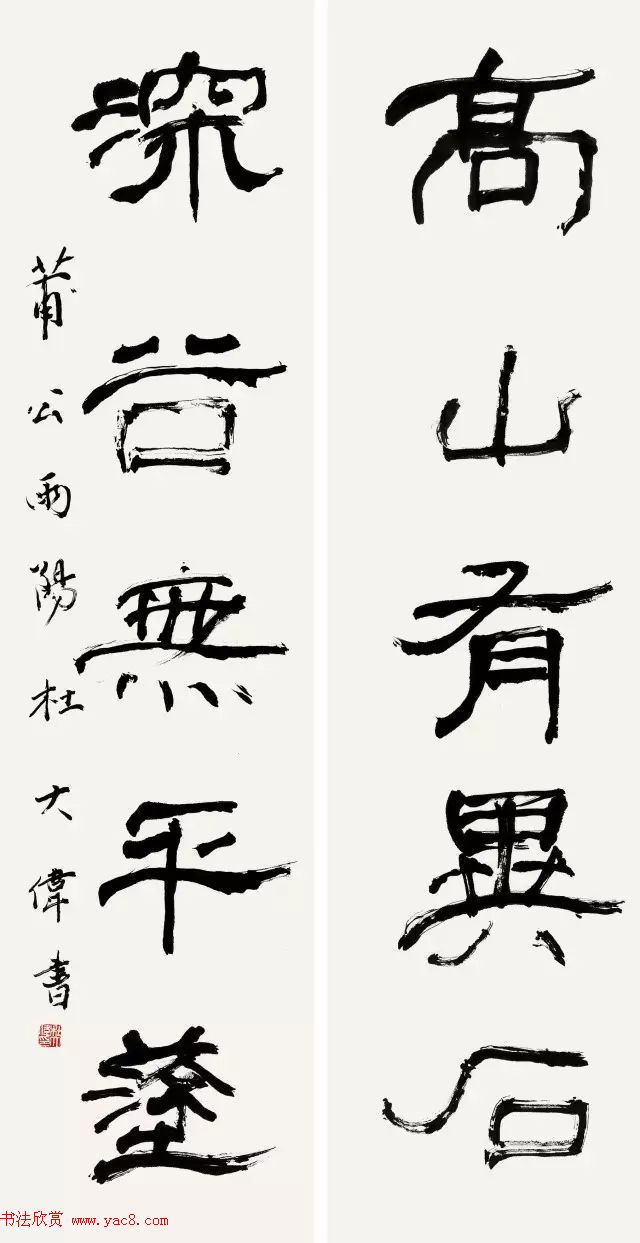 高山有異石
深谷無平塗
莆公雨陽杜大偉書
书法欣赏 www.yac8.com